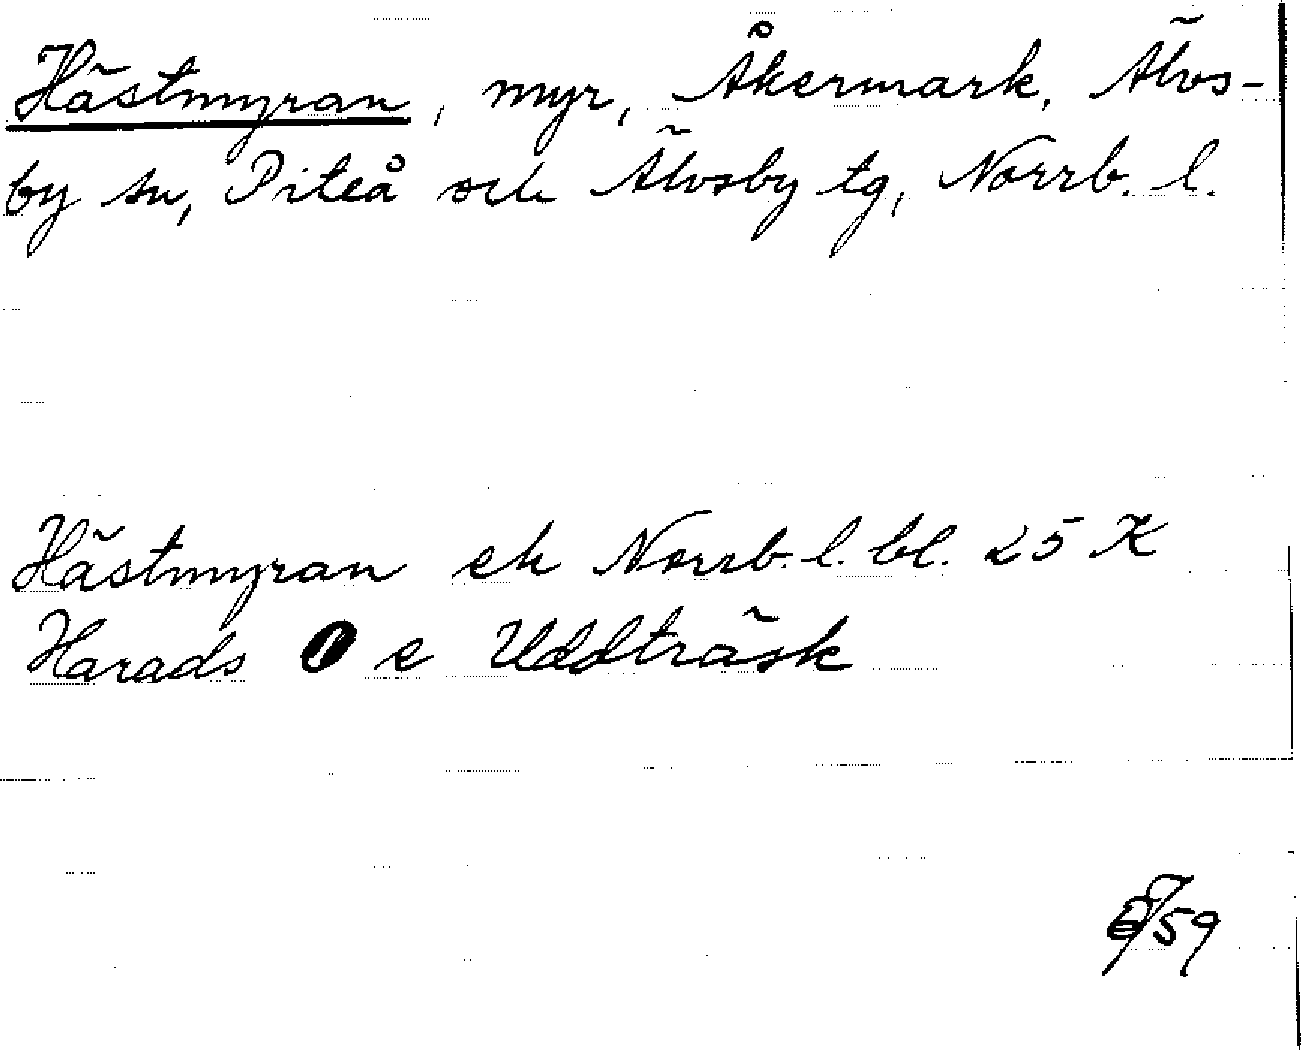 Hästmyran, myr, Åkermark, Älvs-
by sn, Piteå och Älvsby tg, Norrb. l.
Hästmyran ek Norrb. l. bl. 25 K
Harads e Uddträsk
/59